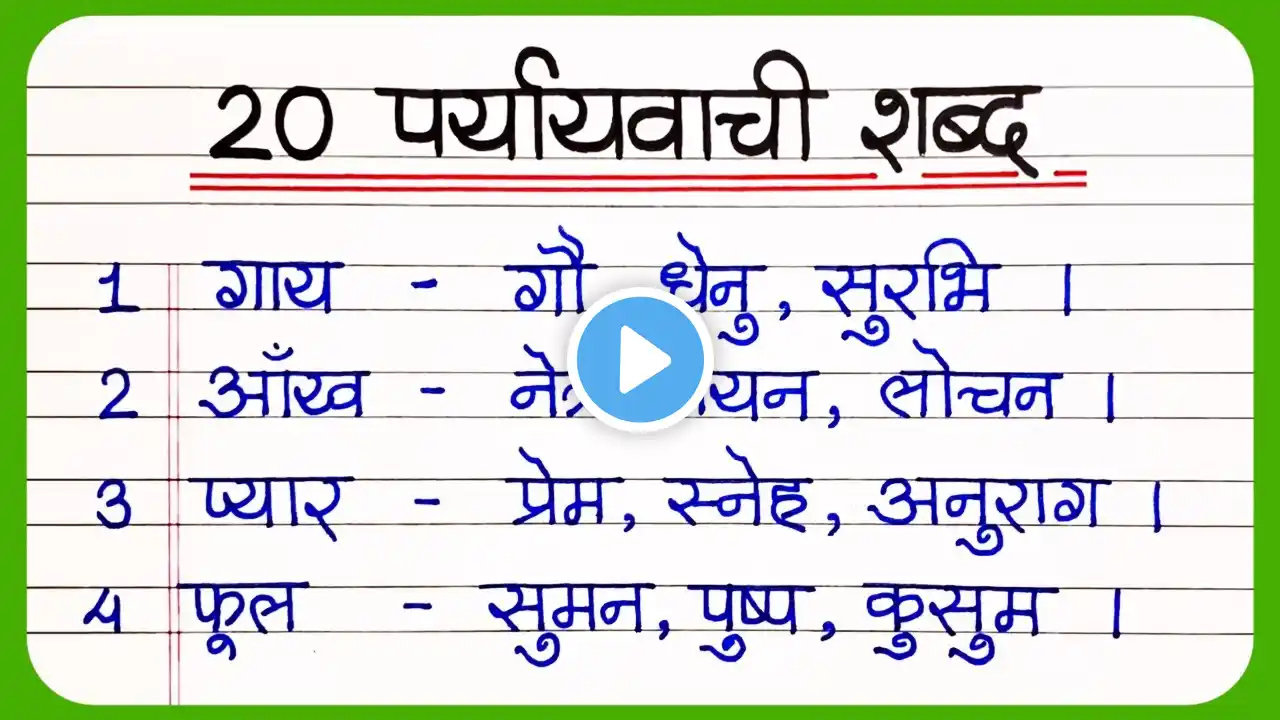 20 पर्यायवाची शब्द
1 गाय - गौ धेनु, सुरभि ।
2 आँख - लोचन ।
3 प्यार - प्रेम, स्नेह, अनुराग ।
4 फूल - सुमन, पुष्प, कुसुम ।